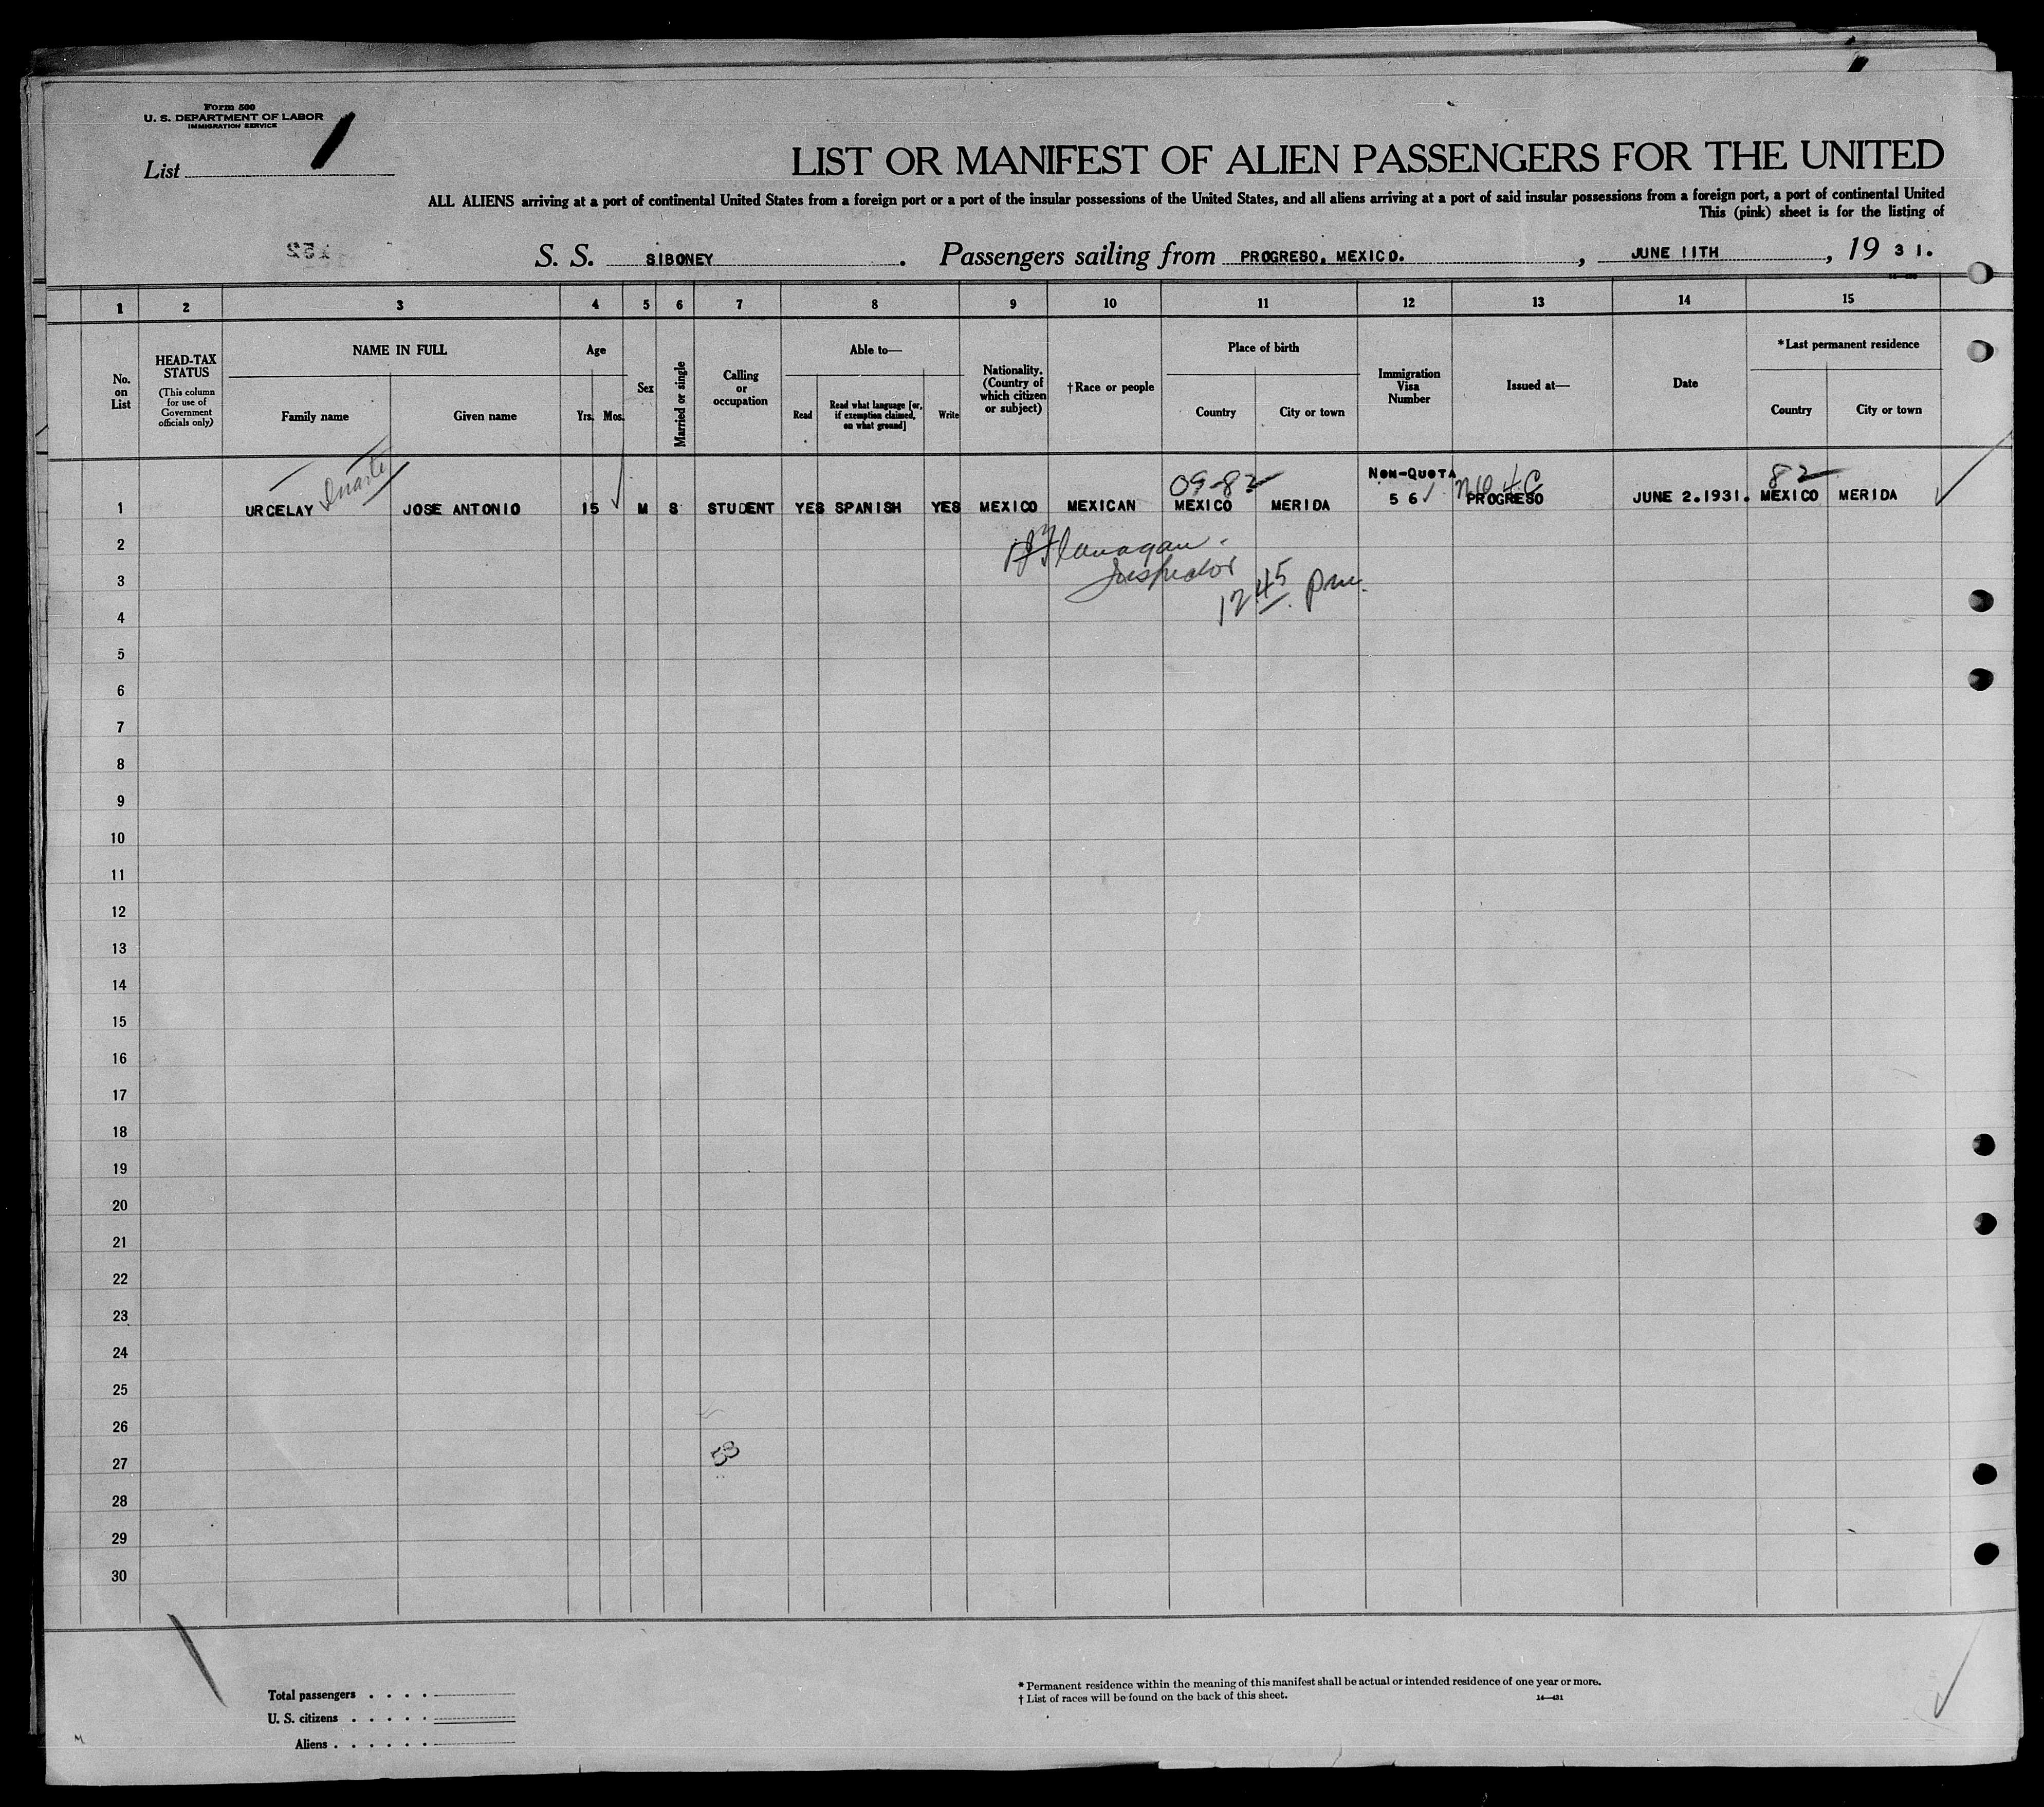 Form 500
U. S. DEPARTMENT OF LABOR
IMMIGRATION SERVICE
List 1
LIST OR MANIFEST OF ALIEN PASSENGERS FOR THE UNITED
ALL ALIENS arriving at a port of continental United States from a foreign port or a port of the insular possessions of the United States, and all aliens arriving at a port of said insular possessions from a foreign port, a port of continental United
This (pink) sheet is for the listing of
152
S. S. SIBONEY. Passengers sailing from PROGRESO, MEXICO., JUNE 11TH, 19 31.
1 2 3 4 5 6 7 8 9 10 11 12 13 14 15
No. on List
HEAD-TAX STATUS
(This column for use of Government officials only)
NAME IN FULL
Family name
Given name
Age
Yrs. Mos.
Sex
Married or single
Calling or occupation
Able to—
Read
Read what language [or, if exemption claimed, on what ground]
Write
Nationality. (Country of which citizen or subject)
†Race or people
Place of birth
Country
City or town
Immigration Visa Number
Issued at—
Date
*Last permanent residence
Country
City or town
09-82 NON-QUOTA 4C 82
1 URCELAY Duarte JOSE ANTONIO 15 M S STUDENT YES SPANISH YES MEXICO MEXICAN MEXICO MERIDA 56 PROGRESO JUNE 2.1931. MEXICO MERIDA
2 Flanagan
3 Inspector
12 45 pm.
4
5
6
7
8
9
10
11
12
13
14
15
16
17
18
19
20
21
22
23
24
25
26
27
28
29
30
Total passengers . . . .
U. S. citizens . . . . .
Aliens . . . . . .
* Permanent residence within the meaning of this manifest shall be actual or intended residence of one year or more.
† List of races will be found on the back of this sheet.